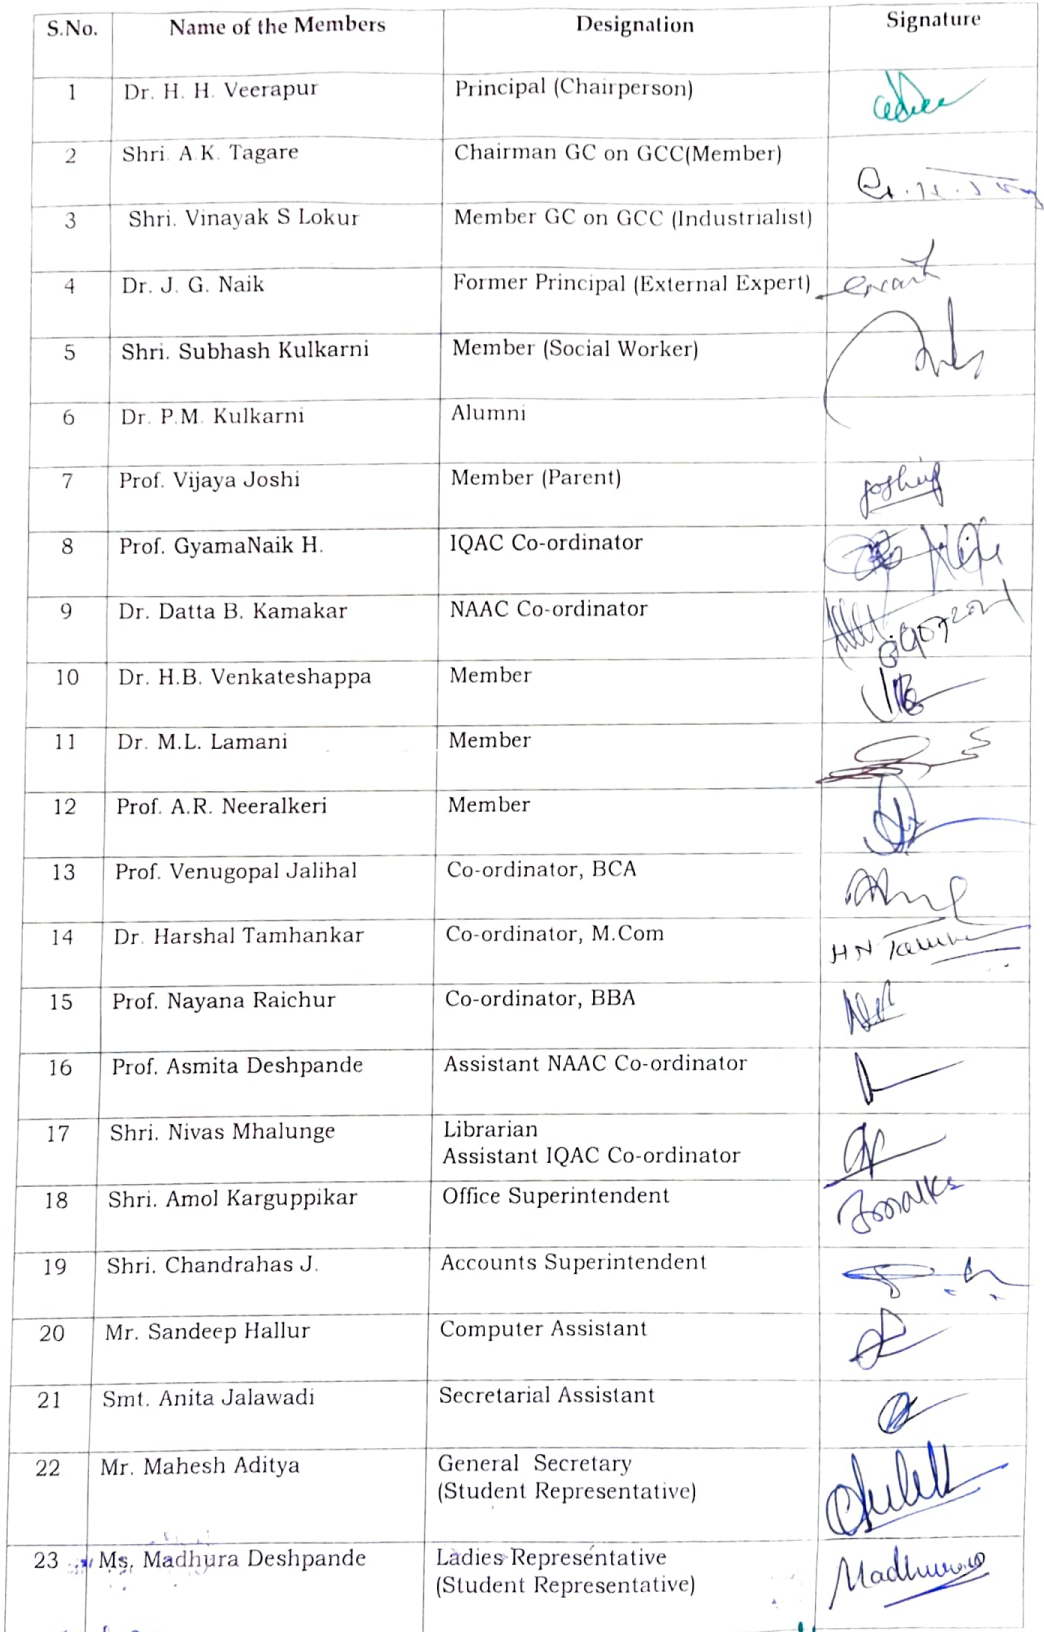 S.No. Name of the Members Designation Signature
1 Dr. H. H. Veerapur Principal (Chairperson)
2 Shri. A.K. Tagare Chairman GC on GCC(Member)
3 Shri. Vinayak S Lokur Member GC on GCC (Industrialist)
4 Dr. J. G. Naik Former Principal (External Expert)
5 Shri. Subhash Kulkarni Member (Social Worker)
6 Dr. P.M. Kulkarni Alumni
7 Prof. Vijaya Joshi Member (Parent)
8 Prof. GyamaNaik H. IQAC Co-ordinator
9 Dr. Datta B. Kamakar NAAC Co-ordinator
10 Dr. H.B. Venkateshappa Member
11 Dr. M.L. Lamani Member
12 Prof. A.R. Neeralkeri Member
13 Prof. Venugopal Jalihal Co-ordinator, BCA
14 Dr. Harshal Tamhankar Co-ordinator, M.Com
15 Prof. Nayana Raichur Co-ordinator, BBA
16 Prof. Asmita Deshpande Assistant NAAC Co-ordinator
17 Shri. Nivas Mhalunge Librarian
Assistant IQAC Co-ordinator
18 Shri. Amol Karguppikar Office Superintendent
19 Shri. Chandrahas J. Accounts Superintendent
20 Mr. Sandeep Hallur Computer Assistant
21 Smt. Anita Jalawadi Secretarial Assistant
22 Mr. Mahesh Aditya General Secretary
(Student Representative)
23 Ms. Madhura Deshpande Ladies Representative
(Student Representative)